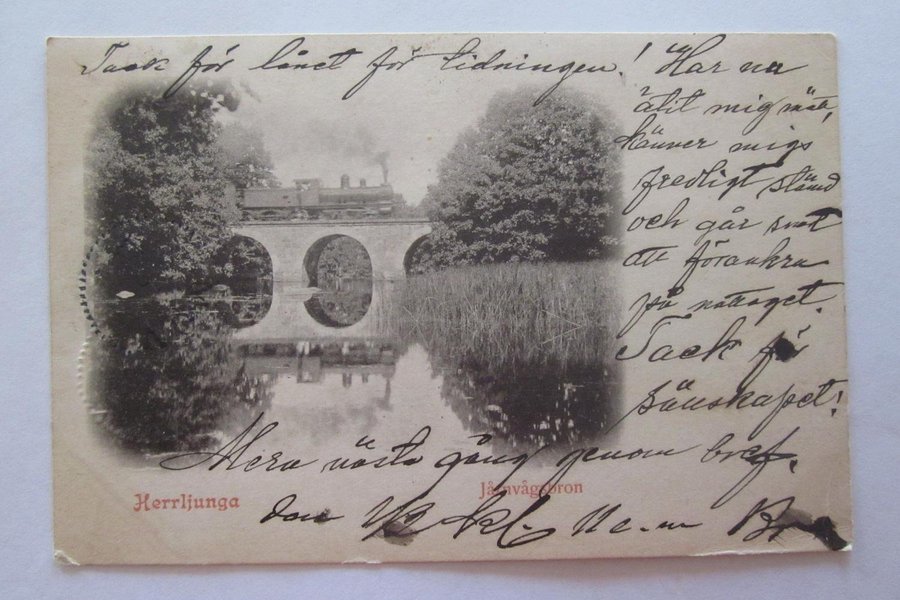 Tack för lånet för tidningen! Har nu
ätit mig mätt,
känner mig
fredligt stämd
och går snart
att förankra
på nattåget.
Tack för
sänskapet!
Mera nästa gång genom bref.
den kl. 11 e.m
Herrljunga
Järnvägsbron